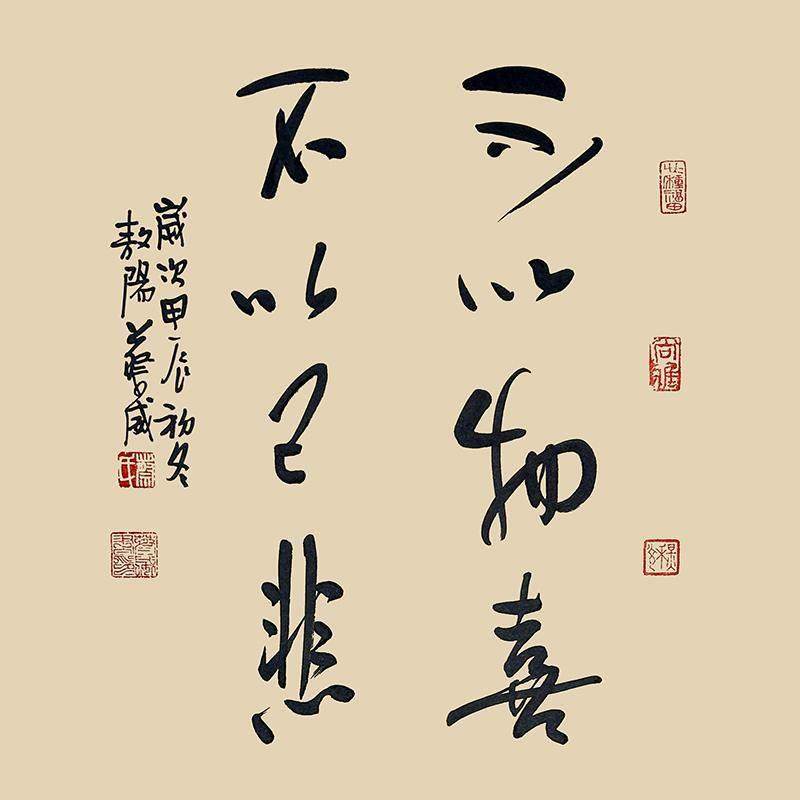 不以物喜
不以己悲
歲次甲辰初冬
敖陽